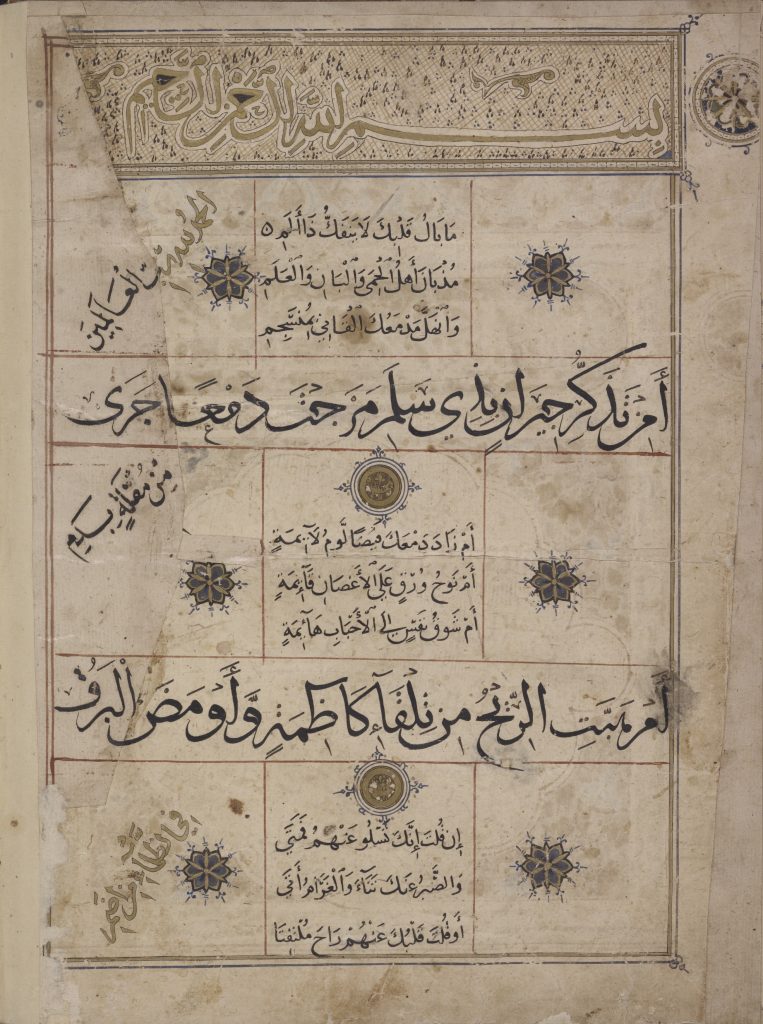 بِسْمِ اللهِ الرَّحْمٰنِ الرَّحِيمِ
الحمد لله ربّ العالمين
مَا بَالُ قَلْبِكَ لَا يَنْفَكُّ ذَا أَلَمِ
مُذْ بَانَ أَهْلُ الْحِمَى وَالْبَانِ وَالْعَلَمِ
وَانْهَلَّ مَدْمَعُكَ الْقَانِي بِمُنْسَجِمِ
أَمِنْ تَذَكُّرِ جِيرَانٍ بِذِي سَلَمِ مَزَجْتَ دَمْعًا جَرَى
مِنْ مُقْلَةٍ بِدَمِ
أَمْ زَادَ دَمْعَكَ فَيْضًا لَوْمُ لَآيِمَةٍ
أَمْ نَوْحُ وُرْقٍ عَلَى الْأَغْصَانِ قَآيِمَةٍ
أَمْ شَوْقُ نَفْسٍ إِلَى الْأَحْبَابِ هَآيِمَةٍ
أَمْ هَبَّتِ الرِّيحُ مِنْ تِلْقَآءِ كَاظِمَةٍ وَّأَوْمَضَ الْبَرْقُ
في الظلماء من إضم
إِنْ قُلْتَ إِنَّكَ تَسْلُو عَنْهُمْ فَمَتَى
وَالصَّبْرُ عَنْكَ تَنَآءَى وَالْغَرَامُ أَتَى
أَوْ قُلْتَ قَلْبُكَ عَنْهُمْ رَاحَ مُلْتَفِتَا